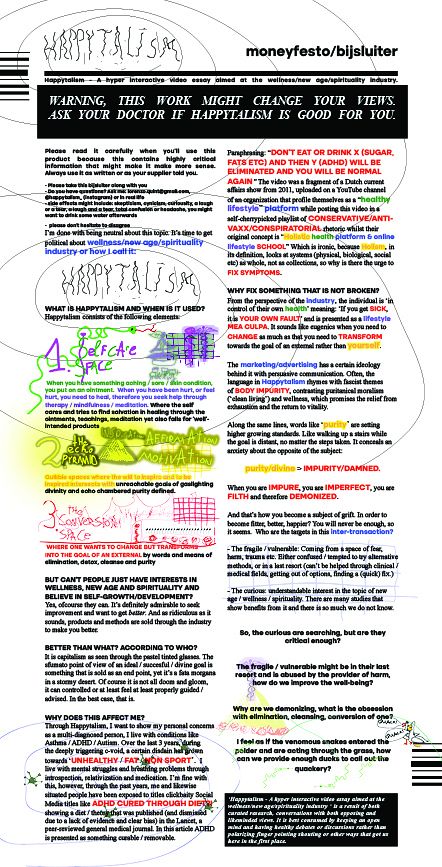 HAPPYTALISM
moneyfesto/bijsluiter
Happytalism - A hyper interactive video essay aimed at the wellness/new age/spirituality industry.
WARNING, THIS WORK MIGHT CHANGE YOUR VIEWS.
ASK YOUR DOCTOR IF HAPPYTALISM IS GOOD FOR YOU.
Please read it carefully when you'll use this
product because this contains highly critical
information that might make it make more sense.
Always use it as written or as your supplier told you.
- Please take this bijsluiter along with you
- Do you have questions? Ask me:
@happytalism_ (instagram) or in real life
- side effects might include: skepticism, cynicism, curiousity, a laugh
or a tear, a cough and a burp, total confusion or headache, you might
want to drink some water afterwards
- please don't hesitate to disagree
I'm done with being neutral about this topic. It's time to get
political about wellness/new age/spirituality
industry or how I call it:
HAPPYTALISM
WHAT IS HAPPYTALISM AND WHEN IS IT USED?
Happytalism consists of the following elements:
1. DELICATE
SPACE
When you have something aching / sore / skin condition,
you put on an ointment. When you have been hurt, or feel
hurt, you need to heal, therefore you seek help through
therapy / mindfulness / medication. Where the self
cares and tries to find salvation in healing through the
ointments, teachings, meditation yet also falls for 'well-
intended products
THE
ECHO
PYRAMID
MOTIVATION
Gullible spaces where the will to inspire and to be
inspired intersects with unreachable goals of gaslighting
divinity and echo chambered purity defined.
THE
CONVERSION
SPACE
WHERE ONE WANTS TO CHANGE BUT TRANSFORMS
INTO THE GOAL OF AN EXTERNAL by words and means of
elimination, detox, cleanse and purity
BUT CAN'T PEOPLE JUST HAVE INTERESTS IN
WELLNESS, NEW AGE AND SPIRITUALITY AND
BELIEVE IN SELF-GROWTH/DEVELOPMENT?
Yes, ofcourse they can. It's definitely admirable to seek
improvement and want to get better. And as ridiculous as it
sounds, products and methods are sold through the industry
to make you better.
BETTER THAN WHAT? ACCORDING TO WHO?
It is capitalism as seen through the pastel tinted glasses. The
sfumato point of view of an ideal / succesful / divine goal is
something that is sold as an end point, yet it's a fats morgana
in a stormy desert. Of course it is not all doom and gloom,
it can controlled or at least feel at least properly guided /
advised. In the best case, that is.
WHY DOES THIS AFFECT ME?
Through Happytalism, I want to show my personal concerns
as a multi-diagnosed person, I live with conditions like
Asthma / ADHD / Autism. Over the last 3 years, during
the deeply triggering c-void, a certain disdain has grown
towards 'UNHEALTHY / FAT / NON SPORT'. I
live with mental struggles and breathing problems through
introspection, relativization and medication. I'm fine with
this, however, through the past years, me and likewise
situated people have been exposed to titles clickbaity Social
Media titles like ADHD CURED THROUGH DIET,
showing a diet / theory that was published (and dismissed
due to a lack of evidence and clear bias) in the Lancet, a
peer-reviewed general medical journal. In this article ADHD
is presented as something curable / removable.
Paraphrasing: "DON'T EAT OR DRINK X (SUGAR,
FATS ETC) AND THEN Y (ADHD) WILL BE
ELIMINATED AND YOU WILL BE NORMAL
AGAIN" The video was a fragment of a Dutch current
affairs show from 2011, uploaded on a YouTube channel
of an organization that profile themselves as a "healthy
lifestyle" platform while posting this video in a
self-cherrypicked playlist of CONSERVATIVE/ANTI-
VAXX/CONSPIRATORIAL rhetoric whilst their
original concept is "Holistic health platform & online
lifestyle SCHOOL" Which is ironic, because Holism, in
its definition, looks at systems (physical, biological, social
etc) as whole, not as collections, so why is there the urge to
FIX SYMPTOMS.
WHY FIX SOMETHING THAT IS NOT BROKEN?
From the perspective of the industry, the individual is 'in
control of their own health' meaning: 'If you get SICK,
it is YOUR OWN FAULT' and is presented as a lifestyle
MEA CULPA. It sounds like eugenics when you need to
CHANGE as much as that you need to TRANSFORM
towards the goal of an external rather than yourself.
The marketing/advertising has a certain ideology
behind it with persuasive communication. Often, the
language in Happytalism rhymes with fascist themes
of BODY IMPURITY, contrasting puritanical moralism
('clean living') and wellness, which promises relief from
exhaustion and the return to vitality.
Along the same lines, words like "purity" are setting
higher growing standards. Like walking up a stairs while
the goal is distant, no matter the steps taken. It conceals an
anxiety about the opposite of the subject:
purity/divine > IMPURITY/DAMNED.
When you are IMPURE, you are IMPERFECT, you are
FILTH and therefore DEMONIZED.
And that's how you become a subject of grift. In order to
become fitter, better, happier? You will never be enough, so
it seems. Who are the targets in this inter-transaction?
- The fragile / vulnerable: Coming from a space of fear,
harm, trauma etc. Either confused / tempted to try alternative
methods, or in a last resort (can't be helped through clinical /
medical fields, getting out of options, finding a (quick) fix.)
- The curious: understandable interest in the topic of new
age / wellness / spirituality. There are many studies that
show benefits from it and there is so much we do not know.
So, the curious are searching, but are they
critical enough?
The fragile / vulnerable might be in their last
resort and is abused by the provider of harm,
how do we improve the well-being?
Why are we demonizing, what is the obsession
with elimination, cleansing, conversion of one?
I feel as if the venomous snakes entered the
polder and are acting through the grass, how
can we provide enough ducks to call out the
quackery?
'Happytalism - A hyper interactive video essay aimed at the
wellness/new age/spirituality industry ' is a result of both
curated research, conversations with both opposing and
likeminded views. It is best consumed by keeping an open
mind and having healthy debates or discussions rather than
polarizing finger pointing shouting or other ways that got us
here in the first place.